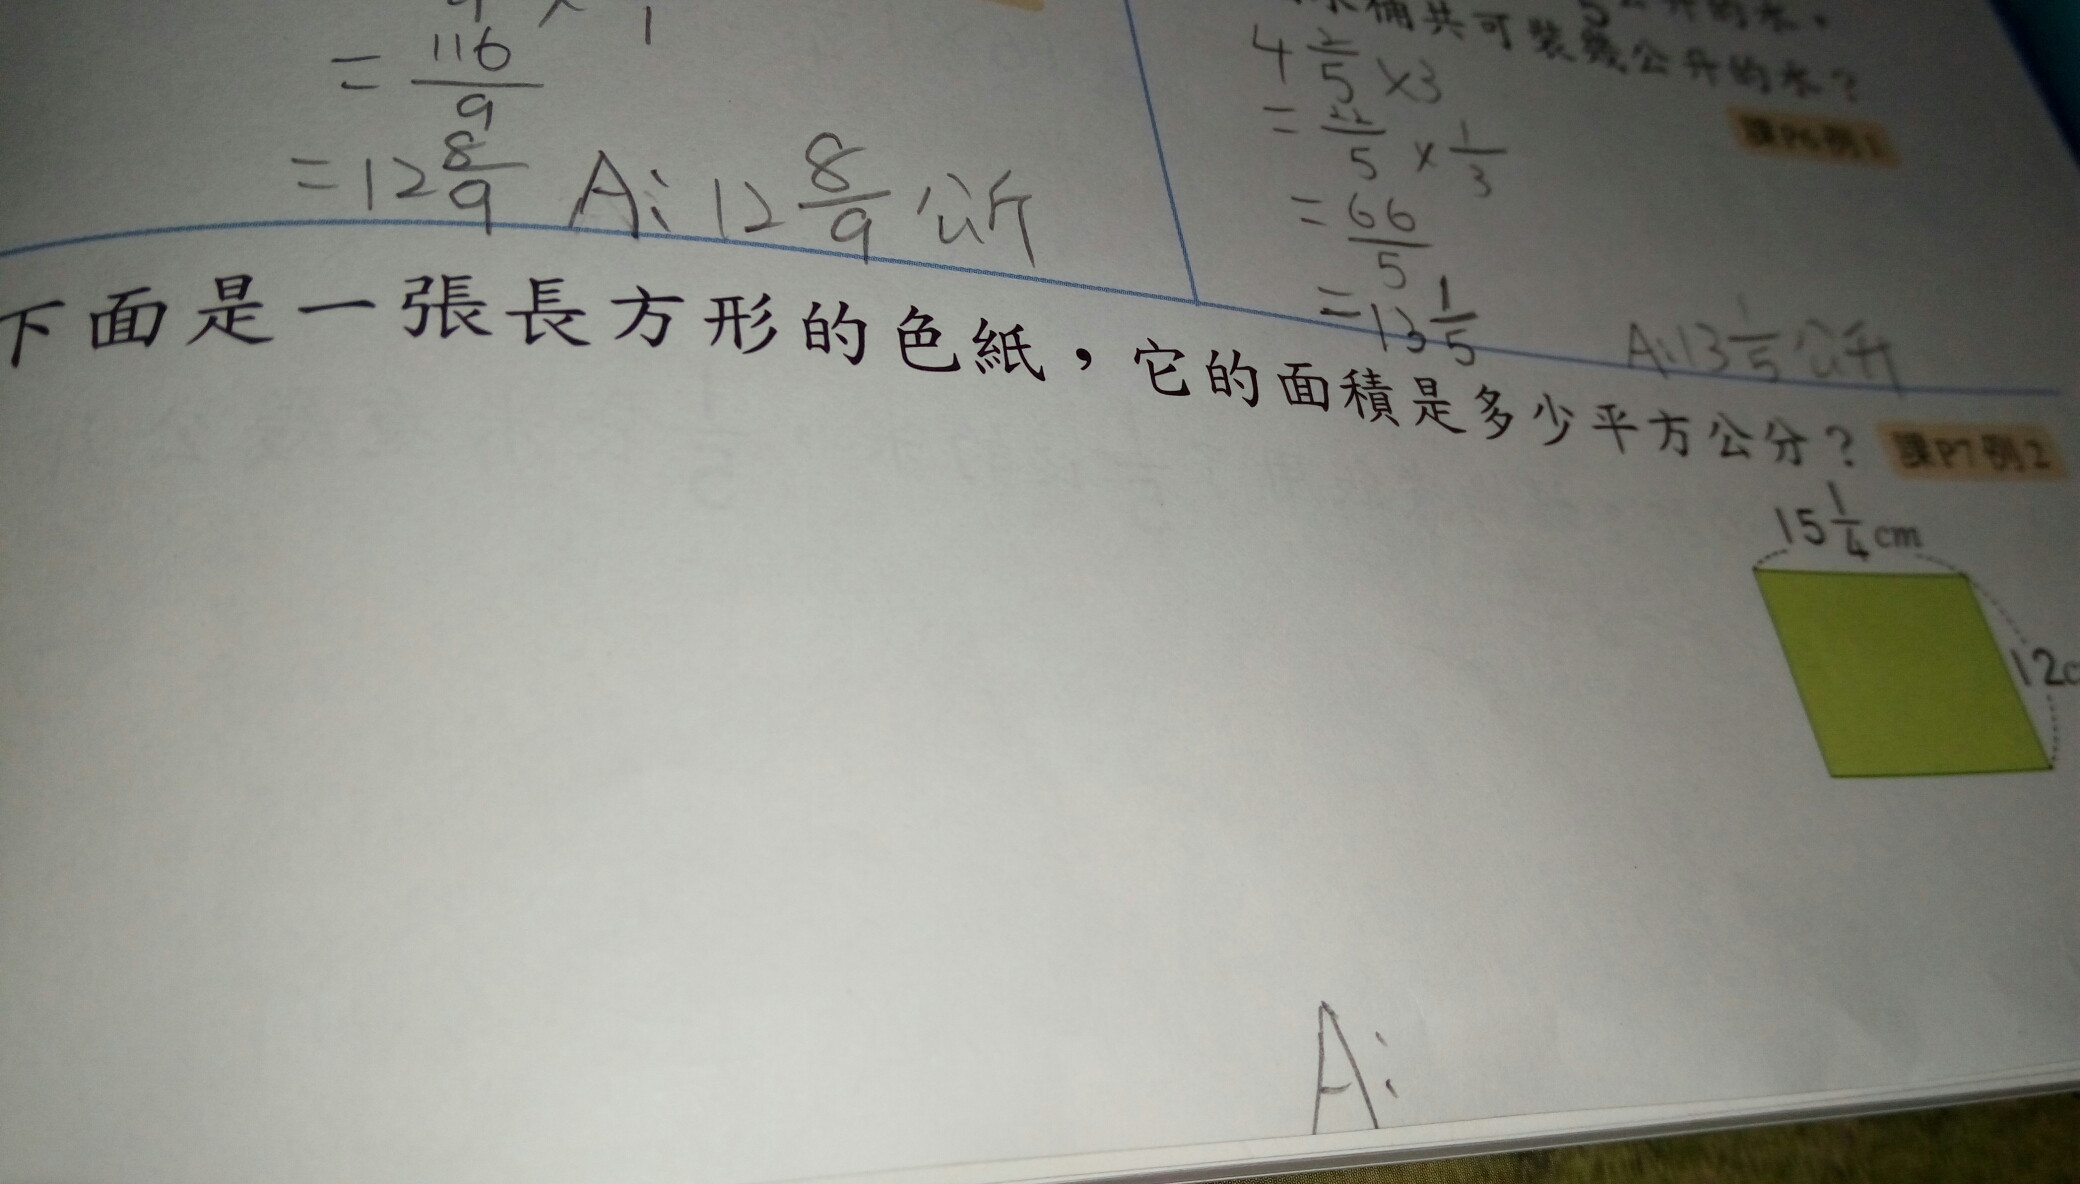 = 116/9
= 12 8/9 A: 12 8/9 公斤
共可裝幾公升的水？
課P6例1
4 2/5 ×3
= 22/5 × 1/3
= 66/5
= 13 1/5
A: 13 1/5 公升
下面是一張長方形的色紙，它的面積是多少平方公分？ 課P7例2
15 1/4 cm
12c
A: